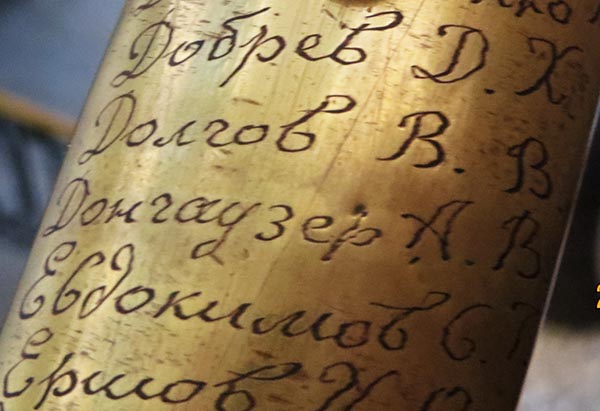 Добрев Д. Х
Долгов В. В
Донгаузер А. В
Евдокимов С.
Ершов